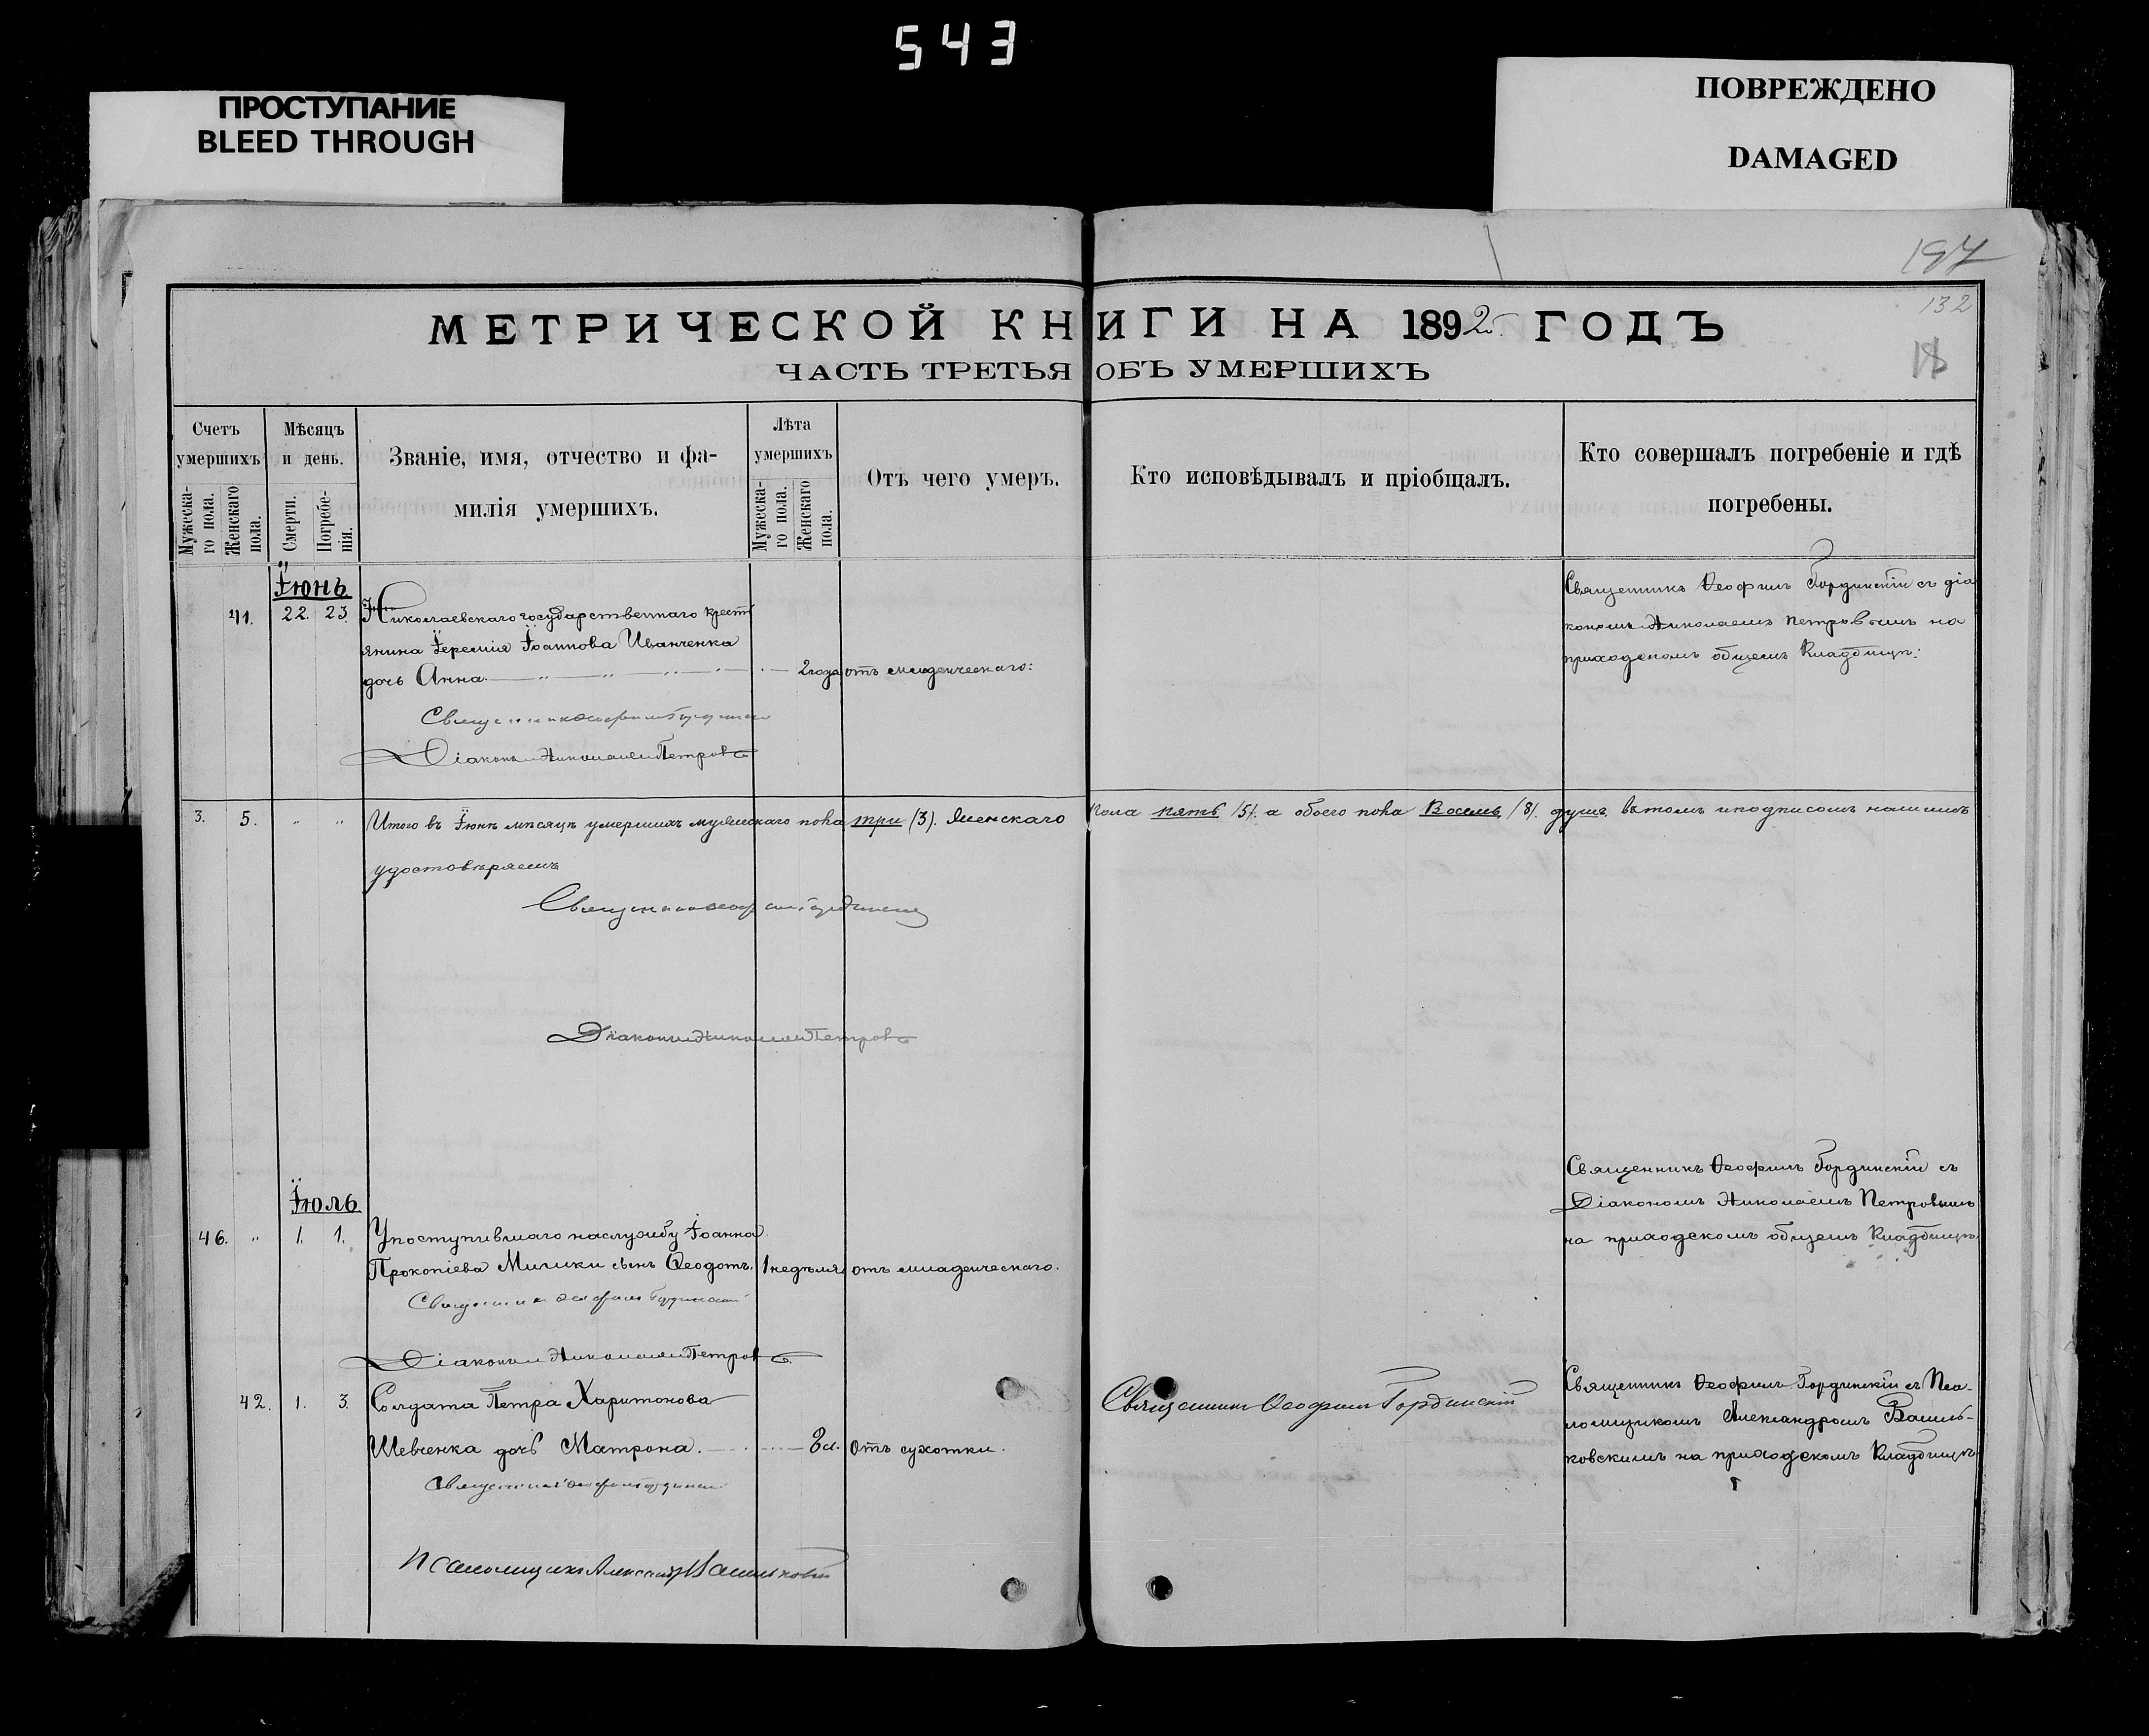 543
ПРОСТУПАНИЕ
BLEED THROUGH
ПОВРЕЖДЕНО
DAMAGED
197
132
МЕТРИЧЕСКОЙ КНИГИ НА 1892 ГОДЪ
18
ЧАСТЬ ТРЕТЬЯ ОБЪ УМЕРШИХЪ
Счетъ умершихъ
Мужеска-го пола.
Женскаго пола.
Мѣсяцъ и день.
Смерти.
Погребе-нія.
Званіе, имя, отчество и фа-
милія умершихъ.
Лѣта умершихъ
Мужеска-го пола.
Женскаго пола.
Отъ чего умеръ.
Кто исповѣдывалъ и пріобщалъ.
Кто совершалъ погребеніе и гдѣ
погребены.
Іюнь
41. 22. 23. Николаевскаго государственнаго крестъ
янина Іеремія Іоаннова Иванченка
дочь Анна 2 года отъ младенческаго:
Священникъ Ѳеофилъ Гординскій съ діа
кономъ Николаемъ Петровымъ на
приходскомъ общемъ кладбищѣ:
Священникъ Ѳеофилъ Гординскій
Діаконъ Николай Петровъ
3. 5. " " Итого въ Іюнѣ мѣсяцѣ умершихъ мужескаго пола три (3). женскаго пола пять (5). а обоего пола Восемь (8). душъ, въ томъ и подписомъ нашимъ
удостовѣряемъ
Священникъ Ѳеофилъ Гординскій
Діаконъ Николай Петровъ
Іюль
46. " 1. 1. Упоступившаго на службу Іоанна
Прокопіева сынъ Ѳеодотъ. 1 недѣля отъ младенческаго.
Священникъ Ѳеофилъ Гординскій съ
Діакономъ Николаемъ Петровымъ
на приходскомъ общемъ кладбищѣ
Священникъ Ѳеофилъ Гординскій
Діаконъ Николай Петровъ
42. 1. 3. Солдата Петра Харитонова
Шевченка дочь Матрона. отъ сухотки.
Священникъ Ѳеофилъ Гординскій
Священникъ Ѳеофилъ Гординскій съ Пса-
ломщикомъ Александромъ Василь-
ковскимъ на приходскомъ кладбищѣ
Священникъ Ѳеофилъ Гординскій
Псаломщикъ Александръ Васильковскій